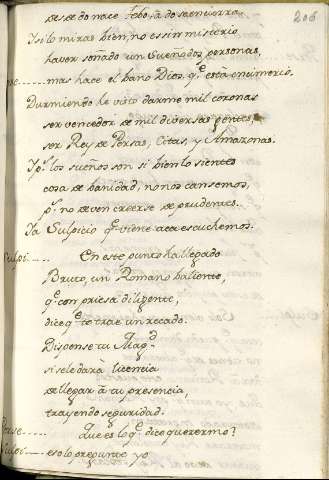 206
desde do nace Febo, â do se encierra
Y si lo miras bien, no es sin misterio
haver soñado un Sueño dos personas,
mas hace el bano Dios, qᵉ està en cimerio.
Durmiendo he visto darme mil coronas
ser vencedor de mil diversas gentes,
ser Rey de Persas, Citas, y Amazonas.
Y pˢ los sueños son si bien lo sientes
cosa de banidad, no nos cansemos,
pˢ no deven creerse de prudentes.
Ya Sulpicio qᵉ viene aca escuchemos.
Sulpi.... En este punto ha llegado
Bruto, un Romano baliente,
qᵉ con priesa diligente,
dice qᵉ te trae un recado.
Dispense tu Magᵈ
si se le darà licencia
de llegar â tu presencia,
trayendo seguridad.
Que es lo qᵉ dice querermo?
eso lo pregunte yo